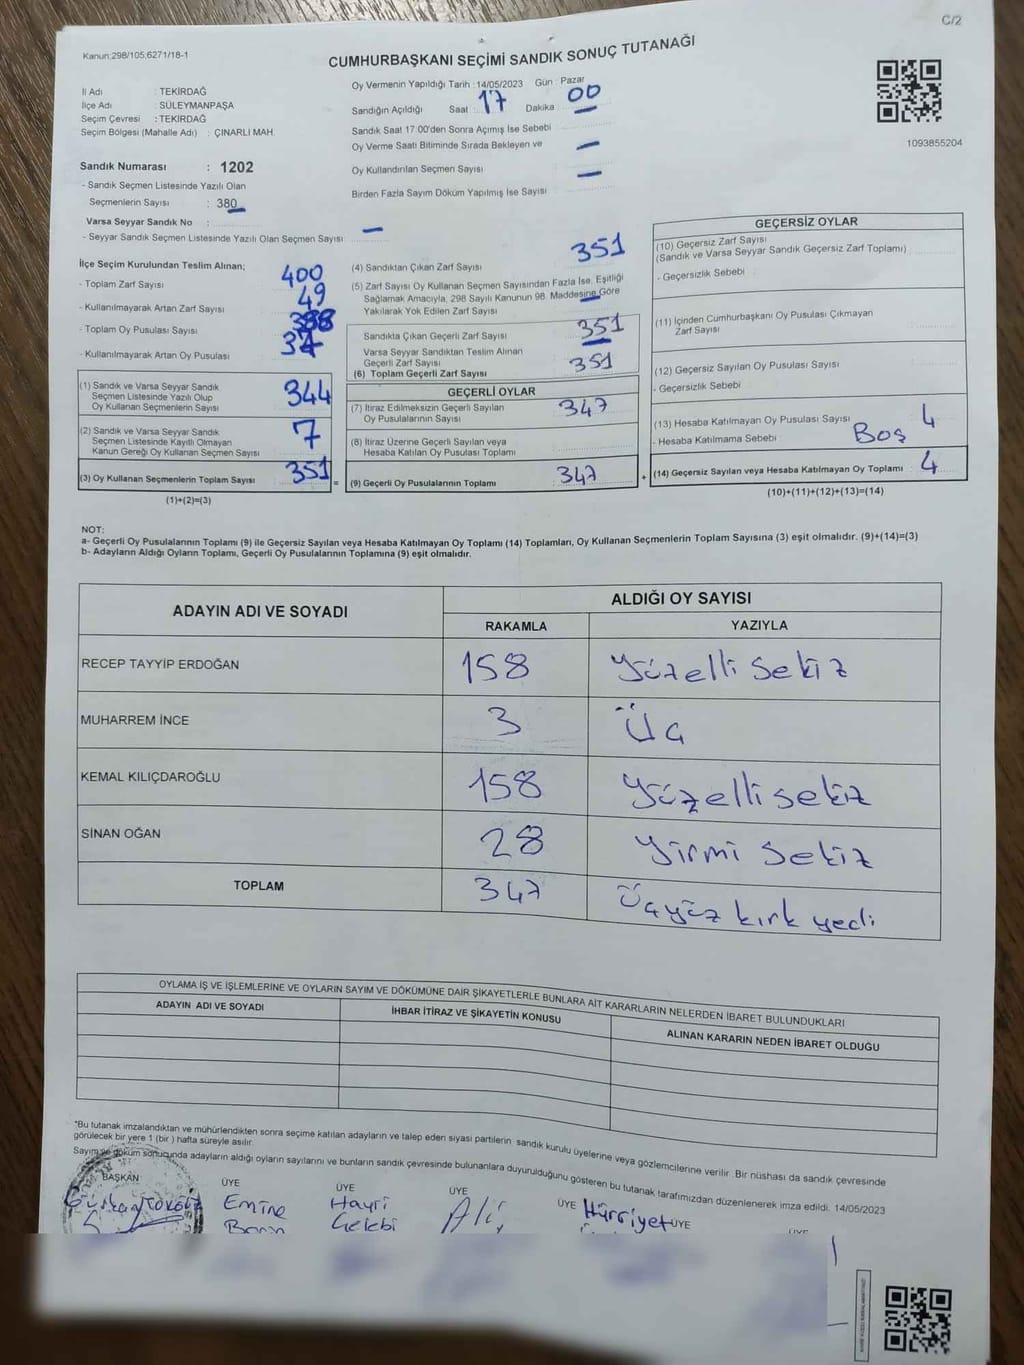 C/2
Kanun:298/105,6271/18-1
CUMHURBAŞKANI SEÇİMİ SANDIK SONUÇ TUTANAĞI
İl Adı : TEKİRDAĞ
İlçe Adı : SÜLEYMANPAŞA
Seçim Çevresi : TEKİRDAĞ
Seçim Bölgesi (Mahalle Adı) : ÇINARLI MAH.
Oy Vermenin Yapıldığı Tarih : 14/05/2023 Gün : Pazar
Sandığın Açıldığı Saat : 17 Dakika : 00
Sandık Saat 17:00'den Sonra Açımış İse Sebebi
Oy Verme Saati Bitiminde Sırada Bekleyen ve —
Oy Kullandırılan Seçmen Sayısı —
Birden Fazla Sayım Döküm Yapılmış İse Sayısı
1093855204
Sandık Numarası : 1202
- Sandık Seçmen Listesinde Yazılı Olan
Seçmenlerin Sayısı : 380
Varsa Seyyar Sandık No :
- Seyyar Sandık Seçmen Listesinde Yazılı Olan Seçmen Sayısı: —
İlçe Seçim Kurulundan Teslim Alınan;
- Toplam Zarf Sayısı 400
- Kullanılmayarak Artan Zarf Sayısı 49
- Toplam Oy Pusulası Sayısı
- Kullanılmayarak Artan Oy Pusulası
(1) Sandık ve Varsa Seyyar Sandık
Seçmen Listesinde Yazılı Olup
Oy Kullanan Seçmenlerin Sayısı 344
(2) Sandık ve Varsa Seyyar Sandık
Seçmen Listesinde Kayıtlı Olmayan
Kanun Gereği Oy Kullanan Seçmen Sayısı 7
(3) Oy Kullanan Seçmenlerin Toplam Sayısı 351 =
(1)+(2)=(3)
(4) Sandıktan Çıkan Zarf Sayısı 351
(5) Zarf Sayısı Oy Kullanan Seçmen Sayısından Fazla İse, Eşitliği
Sağlamak Amacıyla, 298 Sayılı Kanunun 98. Maddesine Göre
Yakılarak Yok Edilen Zarf Sayısı —
Sandıkta Çıkan Geçerli Zarf Sayısı 351
Varsa Seyyar Sandıktan Teslim Alınan
Geçerli Zarf Sayısı —
(6) Toplam Geçerli Zarf Sayısı 351
GEÇERLİ OYLAR
(7) İtiraz Edilmeksizin Geçerli Sayılan
Oy Pusulalarının Sayısı 347
(8) İtiraz Üzerine Geçerli Sayılan veya
Hesaba Katılan Oy Pusulası Toplamı
(9) Geçerli Oy Pusulalarının Toplamı 347 +
GEÇERSİZ OYLAR
(10) Geçersiz Zarf Sayısı
(Sandık ve Varsa Seyyar Sandık Geçersiz Zarf Toplamı)
- Geçersizlik Sebebi
(11) İçinden Cumhurbaşkanı Oy Pusulası Çıkmayan
Zarf Sayısı
(12) Geçersiz Sayılan Oy Pusulası Sayısı
- Geçersizlik Sebebi
(13) Hesaba Katılmayan Oy Pusulası Sayısı 4
- Hesaba Katılmama Sebebi Boş
(14) Geçersiz Sayılan veya Hesaba Katılmayan Oy Toplamı 4
(10)+(11)+(12)+(13)=(14)
NOT:
a- Geçerli Oy Pusulalarının Toplamı (9) ile Geçersiz Sayılan veya Hesaba Katılmayan Oy Toplamı (14) Toplamları, Oy Kullanan Seçmenlerin Toplam Sayısına (3) eşit olmalıdır. (9)+(14)=(3)
b- Adayların Aldığı Oyların Toplamı, Geçerli Oy Pusulalarının Toplamına (9) eşit olmalıdır.
ADAYIN ADI VE SOYADI
ALDIĞI OY SAYISI
RAKAMLA YAZIYLA
RECEP TAYYİP ERDOĞAN 158 Yüzelli Sekiz
MUHARREM İNCE 3 Üç
KEMAL KILIÇDAROĞLU 158 Yüzelli sekiz
SİNAN OĞAN 28 Yirmi Sekiz
TOPLAM 347 Üçyüz kırk yedi
OYLAMA İŞ VE İŞLEMLERİNE VE OYLARIN SAYIM VE DÖKÜMÜNE DAİR ŞİKAYETLERLE BUNLARA AİT KARARLARIN NELERDEN İBARET BULUNDUKLARI
ADAYIN ADI VE SOYADI İHBAR İTİRAZ VE ŞİKAYETİN KONUSU ALINAN KARARIN NEDEN İBARET OLDUĞU
*Bu tutanak imzalandıktan ve mühürlendikten sonra seçime katılan adayların ve talep eden siyasi partilerin sandık kurulu üyelerine veya gözlemcilerine verilir. Bir nüshası da sandık çevresinde
görülecek bir yere 1 (bir ) hafta süreyle asılır.
Sayım ve döküm sonucunda adayların aldığı oyların sayılarını ve bunların sandık çevresinde bulunanlara duyurulduğunu gösteren bu tutanak tarafımızdan düzenlenerek imza edildi. 14/05/2023
BAŞKAN ÜYE ÜYE ÜYE ÜYE ÜYE ÜYE
Emine Hayri Ali Hürriyet